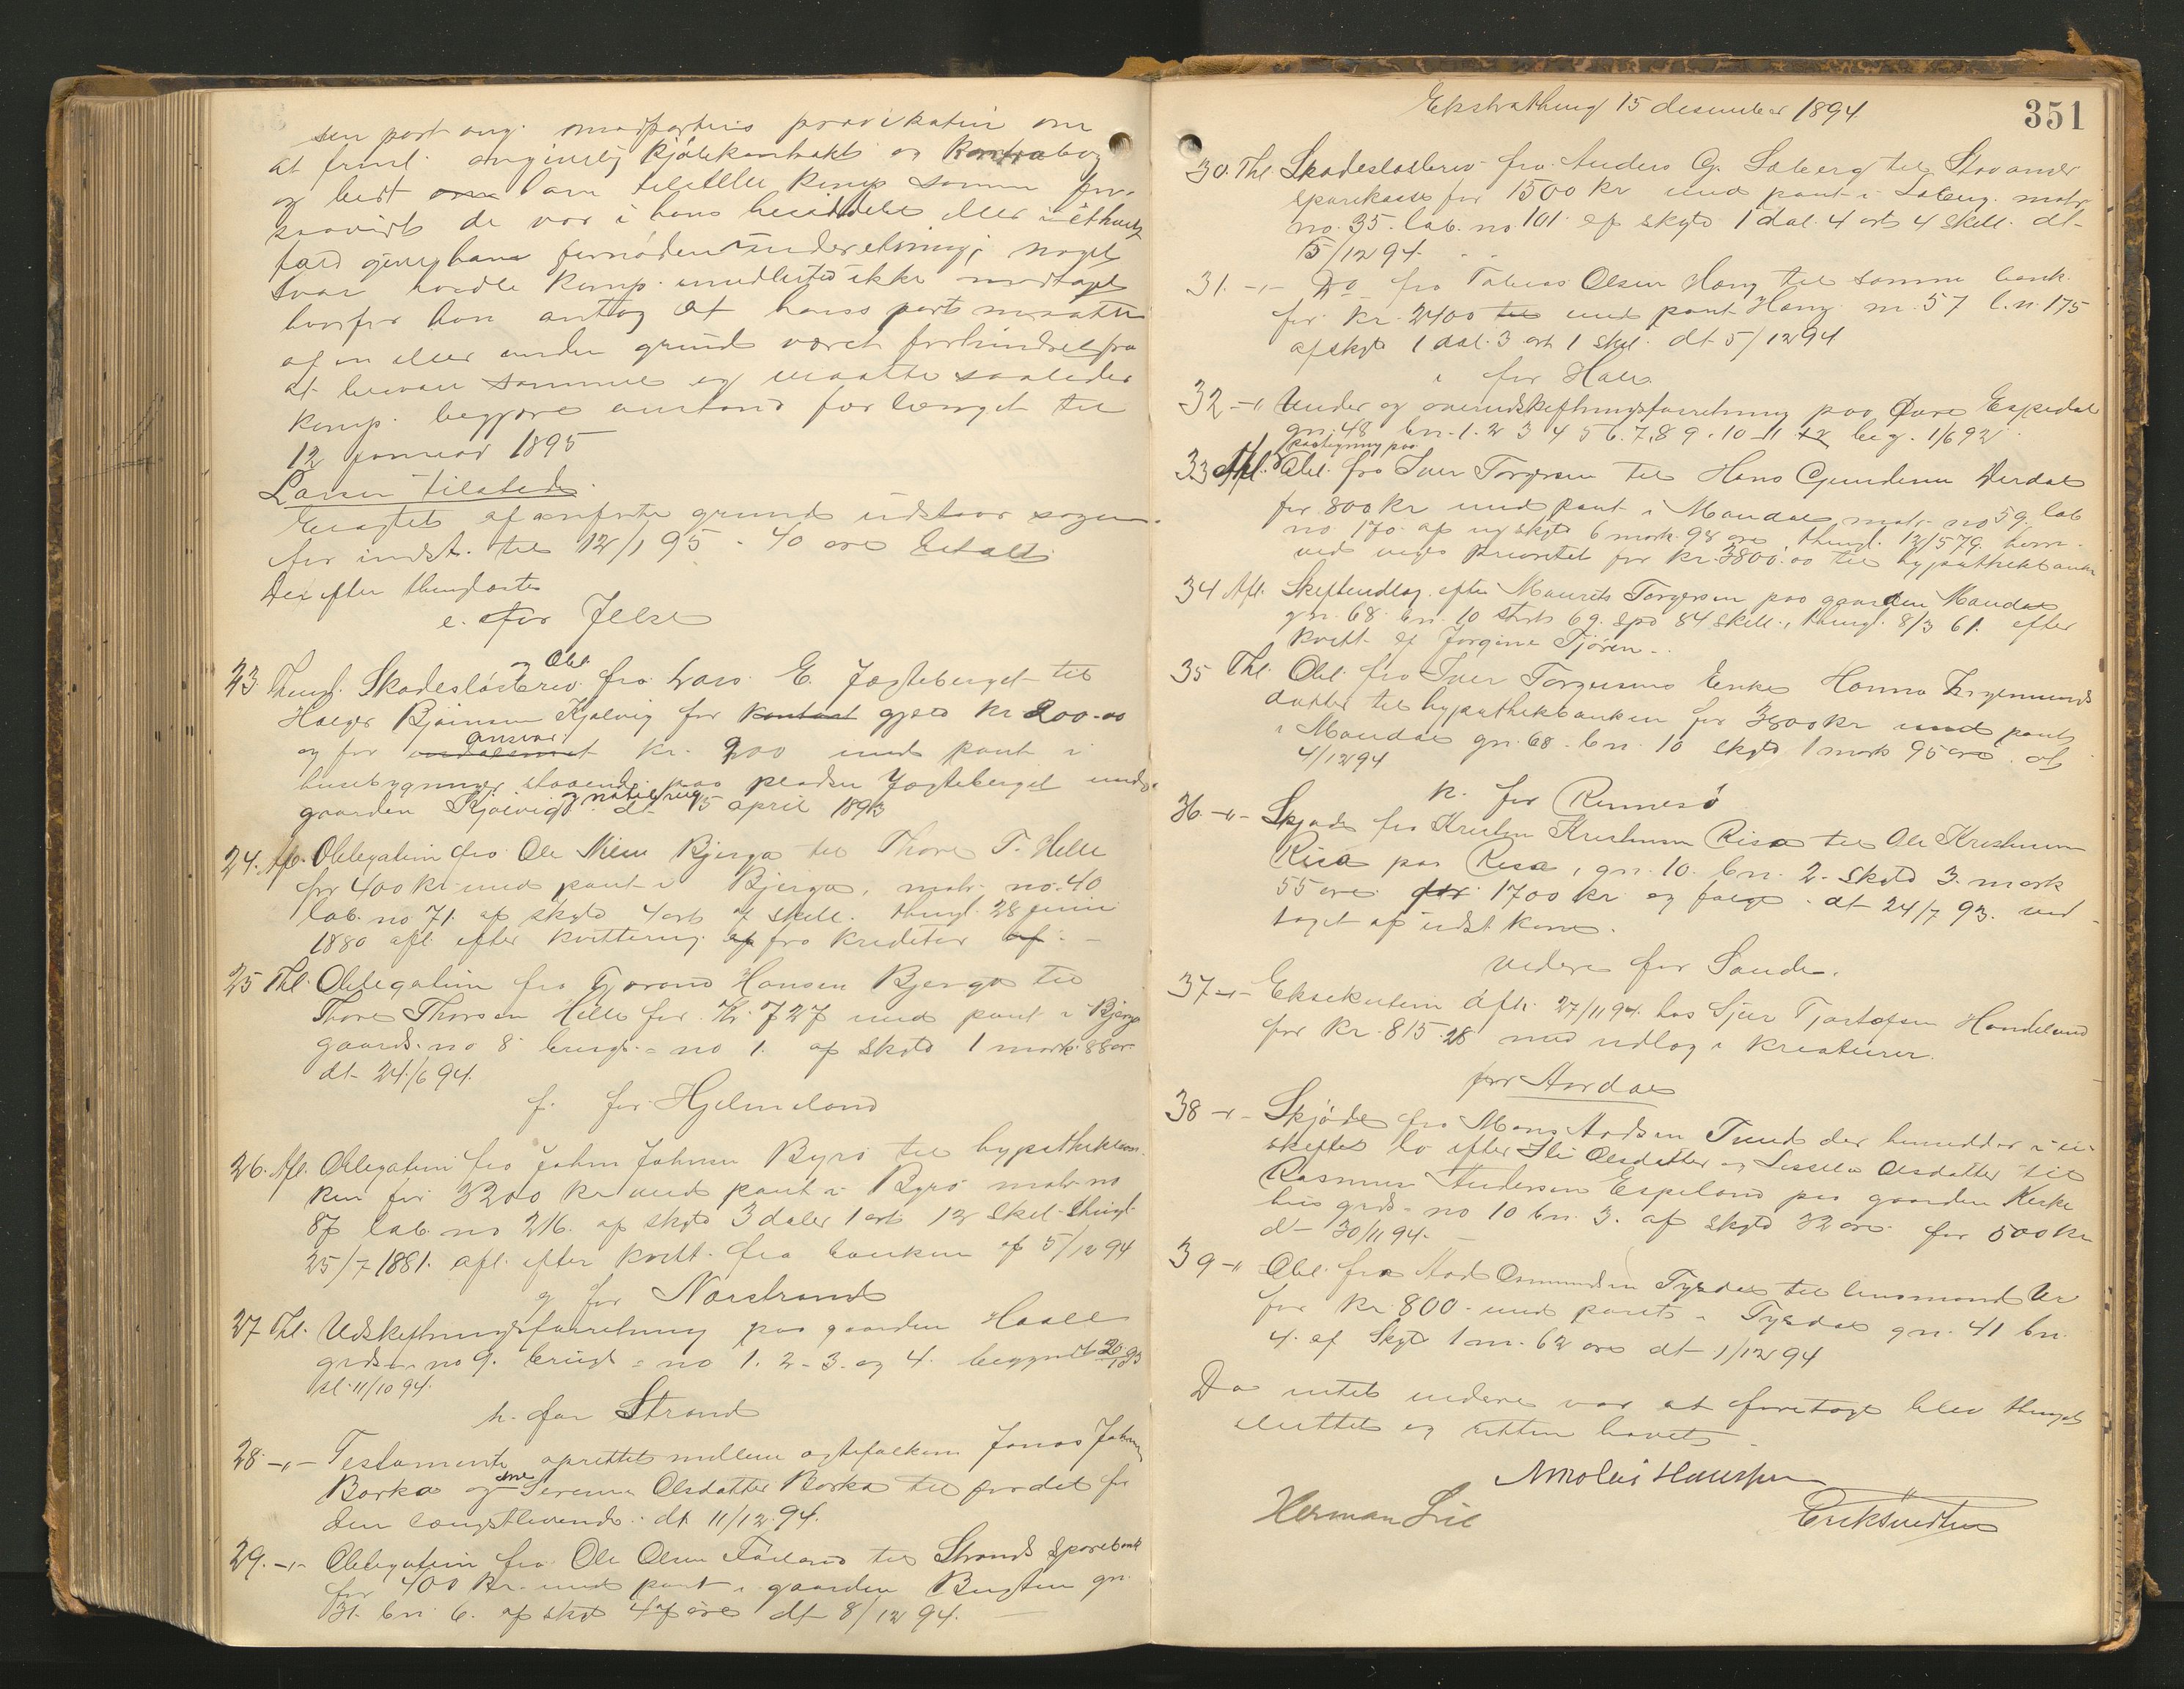 sin part ang. modpartens provikation om
at freml. angivelig kjöbekontrakt og Kontrabog
og bedt ham tilstille komp. samme for-
saavidt de var i hans besiddelse eller i ethvert
fald give ham fornöden underretning; noget
svar havde komp. imidlertid ikke modtaget
hvorfor han antog at hans part maatte
af en eller anden grund været forhindret fra
at besvare samme og maatte saaledes
komp. begjære anstand forlænget til
12 januar 1895
Larsen tilstede.
Eragtet af anförte grund udstaar sagen
til 12/1 95. 40 öre betalt
Derefter thinglæstes
e. for Jelse
23 Thingl. Skadeslösbrev og Obl. fra Lars E. Jagteberget til
Holger Björnsen Kjølevig for kontant gjæld kr 200.00
og for ansvar kr. 200 med pant i
husebygninger staaende paa pladsen Jagteberget under
gaarden Kjølevig dt 15 april 1893
24. Afl. Obligation fra Ole Nilsen Bjerga til Thore T. Helle
for 400 kr med pant i Bjerga, matr. no. 40
lab. no 71. af skyld 4 ort 7 skill. thingl. 28 juni
1880 afl. efter kvittering fra kreditor
25 Thl. Obligation fra Gjoran Hansen Bjerga til
Thore Thorsen Helle for Kr. 727 med pant i Bjerga
gaards. no 8 brugs - no 1. af skyld 1 mark 88 ør
dt 24/6 94.
f. for Hjelmeland
26. Afl. Obligation fra John Johnsen Byrö til hypothekban-
ken for 3200 kr med pant i Byrö matr. no
87 lab. no 216. af skyld 3 daler 1 ort 12 skil. thingl.
25/7 1881. afl. efter kvitt. fra banken af 5/12 94
g for Narstrand
27 Thl. Udskiftningsforretning paa gaarden Haaell
grds - no 9. brugs - no 1. 2 - 3. og 4. begyndt 20/10 93
sl. 11/10 94.
h. for Strand
28 -"- Testamente oprettet mellem ægtefolkene Jonas Johnsen
Barka og Serena Olsdatter Barka til fordel for
den længstlevende. dt 11/12 94.
29. -"- Obligation fra Ole Olsen til Strands sparebank
for 400 kr. med pant i gaarden Bugten gn.
31. bn. 6. af skyld 47 öre dt 8/12 94.
Ekstrathing 15 desember 1894
351
30. Thl. Skadeslösbrev fra Anders G. Soberg til Stavanger
sparekasse for 1500 kr med pant i Soberg. matr
no. 35. lab. no 101 af skyld 1 dal. 4 ort 4 skill. dt
15/12 94.
31. -"- Do fra Tobias Olsen Haug til samme bank
for kr. 2400 med pant Haug m. 57 l.n. 175
af skyld 1 dal. 3 ort 1 skil. dt 5/12 94
i for Hole
32 -"- Under og overudskiftningsforretning paa Övre Espedal
gn. 48 bn. 1. 2 3 4 5 6. 7. 8 9. 10 11 12 beg. 1/6 92
33 Afl. paategning paa Obl. fra Iver Torgersen til Hans Gundersen Dirdal
for 800 kr med pant i Maudal matr. no 59. lab
no 170 af ny skyld 6 mark 98 öre thingl. 12/5 79. hvor-
ved viges prioritet for kr. 3800.00 til hypothekbanken
34 Afl. Skifteudlæg efter Maurits Torgersen paa gaarden Maudal
gn. 68. bn. 10 stort 69. spd 84 skill., thingl. 8/3 61. efter
kvitt. af Jorgine Tjören.
35 Thl. Obl. fra Iver Torgersens Enke Hanna
datter til hypothekbanken for 3800 kr med pant
i Maudal gn. 68. bn. 10 skyld 1 mark 95 öre dt
4/12 94
k. for Rennesö
36. -"- Skjöde fra Kristen Kristensen Risa til Ole Kristensen
Risa paa Risa, gn. 10. bn. 2. skyld 3. mark
55 öre for 1700 kr og følge. dt 24/7 93. ved-
taget af udst. kone.
videre for Sande.
37 -"- Eksekution afh. 27/11 94. hos Sjur Tjostofsen Handeland
for kr. 815.28 med udlæg i kreaturer.
for Aardal
38 -"- Skjöde fra Mons Aadsen Tund der hensidder i u-
skiftet bo efter Eli Olsdatter og Sissela Olsdatter til
Rasmus Andersen Espeland paa gaarden Kirke
hus grds - no 10 bn. 3. af skyld 32 öre for 500 kr
dt 30/11 94.
39 -"- Obl. fra Aad Osmundsen Tysdal til lensmand Ur
for kr. 800 - med pant i Tysdal gn. 41 bn.
4. af skyld 1 m. 62 öre dt 1/12 94
Da intet videre var at foretage blev thinget
sluttet og retten hævet.
Nikolai Hansen
Herman Lie